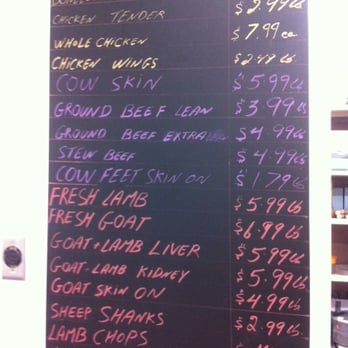 CHICKEN TENDER $2.99lb
WHOLE CHICKEN $7.99ea
CHICKEN WINGS $2.99lb
COW SKIN $5.99lb
GROUND BEEF LEAN $3.99lb
GROUND BEEF EXTRA $4.99lb
STEW BEEF $4.99lb
COW FEET SKIN ON $1.79lb
FRESH LAMB $5.99lb
FRESH GOAT $6.99lb
GOAT+LAMB LIVER $5.99lb
GOAT-LAMB KIDNEY $5.99lb
GOAT SKIN ON $4.99lb
SHEEP SHANKS $2.99lb
LAMB CHOPS